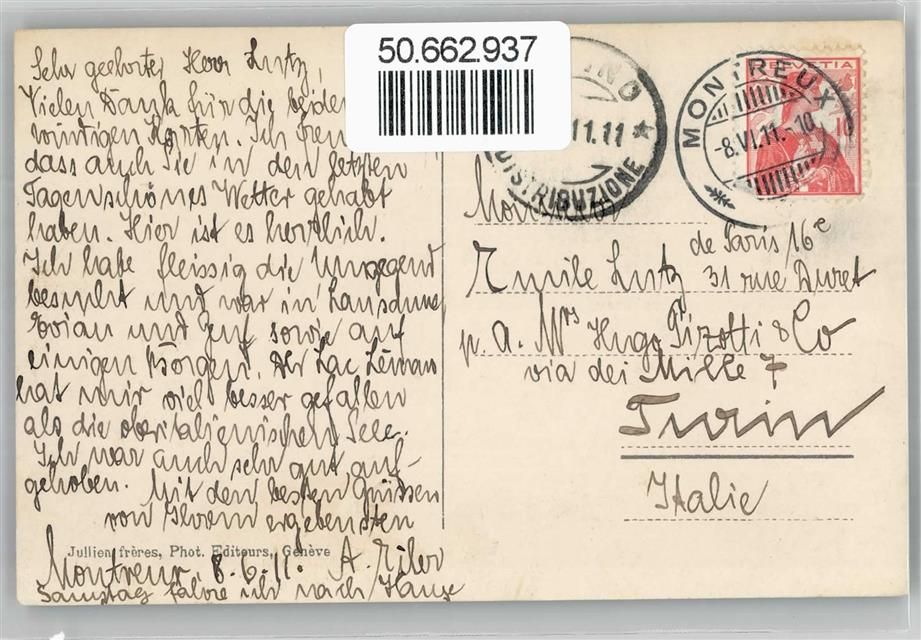 50.662.937
Sehr geehrter Herr Lutz,
Vielen Dank für die beiden
würdigen Karten. Ich freu
dass auch Sie in den letzten
Tagen schönes Wetter gehabt
haben. Hier ist es herrlich.
Ich habe fleissig die Umgegend
besucht und war in Lausanne,
Evian und Genf sowie auf
einigen Bergen. Der Lac Léman
hat mir viel besser gefallen
als die oberitalienischen Seen.
Ich war auch sehr gut auf-
gehoben. Mit den besten Grüssen
von Ihrem ergebensten
Jullien frères, Phot. Editeurs, Genève
Montreux 8.6.11. A.
Samstag fahre ich nach Hause
INO
11.11
DISTRIBUZIONE
MONTREUX
-8.VI.11.-10
HELVETIA
10
Monsieur
Emile Lutz de Paris 16e
31 rue Duret
p. a. Mrs Hugo Pizotti & Co
via dei Mille 7
Turin
Italie